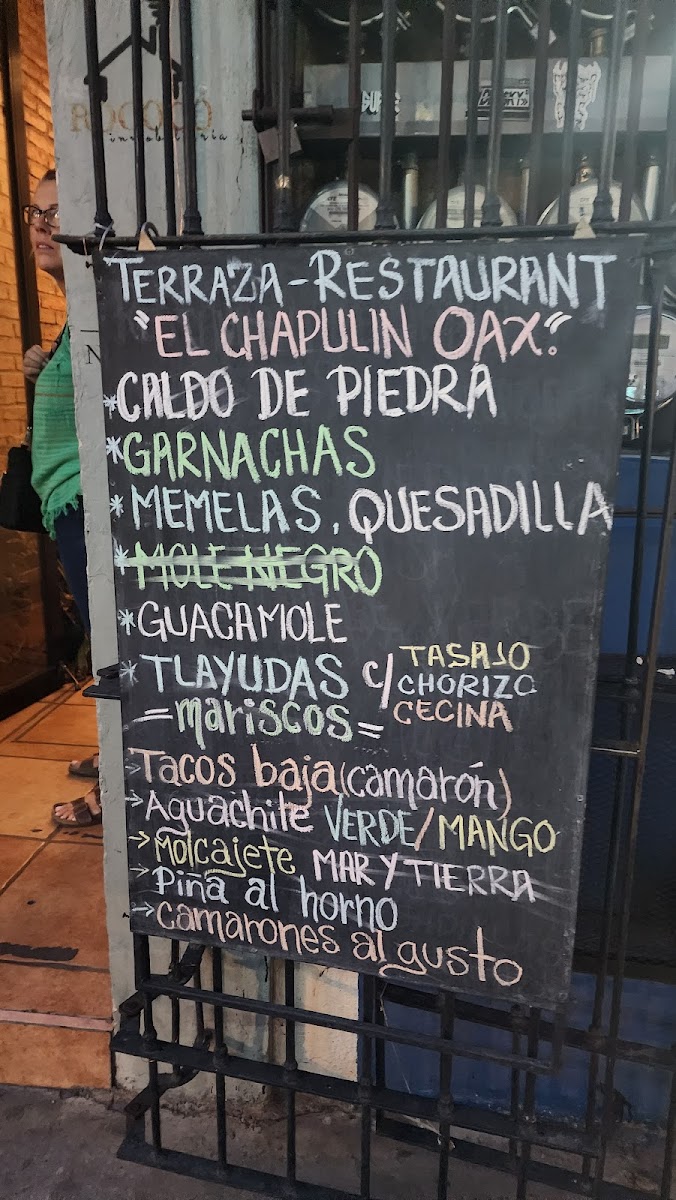 ROCOCO
inmobiliaria
TERRAZA-RESTAURANT
"EL CHAPULIN OAX."
*CALDO DE PIEDRA
*GARNACHAS
*MEMELAS, QUESADILLA
*MOLE NEGRO
*GUACAMOLE
*TLAYUDAS c/ TASAJO
CHORIZO
CECINA
=mariscos=
→Tacos baja(camarón)
→Aguachile VERDE/MANGO
→Molcajete MAR Y TIERRA
→Piña al horno
→camarones al gusto